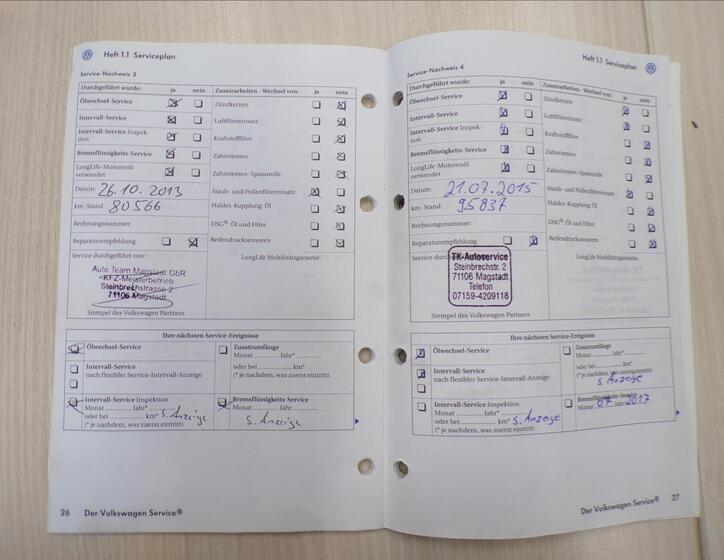 Heft 1.1 Serviceplan
Service-Nachweis 3
Durchgeführt wurde: ja nein
Zusatzarbeiten - Wechsel von: ja nein
Ölwechsel-Service
Zündkerzen
Intervall-Service
Luftfiltereinsatz
Intervall-Service Inspek-
tion
Kraftstofffilter
Bremsflüssigkeits-Service
Zahnriemen
LongLife-Motorenöl
verwendet
Zahnriemen: Spannrolle
Datum: 26.10.2013
Staub- und Pollenfiltereinsatz
km-Stand: 80566
Haldex-Kupplung: Öl
Rechnungsnummer:
DSG®: Öl und Filter
Reparaturempfehlung
Reifendrucksensoren
Service durchgeführt von:
LongLife Mobilitätsgarantie:
Auto Team Magstadt GbR
KFZ-Meisterbetrieb
Steinbrechstrasse 2
71106 Magstadt
Stempel des Volkswagen Partners
Ihre nächsten Service-Ereignisse
Ölwechsel-Service
Zusatzumfänge
Monat Jahr*
oder bei km*
(* je nachdem, was zuerst eintritt)
Intervall-Service
nach flexibler Service-Intervall-Anzeige
Intervall-Service Inspektion
Monat Jahr*
oder bei km* s. Anzeige
(* je nachdem, was zuerst eintritt)
Bremsflüssigkeits-Service
Monat Jahr
s. Anzeige
26 Der Volkswagen Service®
Heft 1.1 Serviceplan
Service-Nachweis 4
Durchgeführt wurde: ja nein
Zusatzarbeiten - Wechsel von: ja nein
Ölwechsel-Service
Zündkerzen
Intervall-Service
Luftfiltereinsatz
Intervall-Service Inspek-
tion
Kraftstofffilter
Bremsflüssigkeits-Service
Zahnriemen
LongLife-Motorenöl
verwendet
Zahnriemen: Spannrolle
Datum: 21.07.2015
Staub- und Pollenfiltereinsatz
km-Stand: 95837
Haldex-Kupplung: Öl
Rechnungsnummer:
DSG®: Öl und Filter
Reparaturempfehlung
Reifendrucksensoren
Service
LongLife Mobilitätsgarantie:
TK-Autoservice
Steinbrechstr. 2
71106 Magstadt
Telefon
07159-4209118
Stempel des Volkswagen Partners
Ihre nächsten Service-Ereignisse
Ölwechsel-Service
Zusatzumfänge
Monat Jahr*
oder bei km*
(* je nachdem, was zuerst eintritt)
s. Anzeige
Intervall-Service
nach flexibler Service-Intervall-Anzeige
Intervall-Service Inspektion
Monat Jahr*
oder bei km* s. Anzeige
(* je nachdem, was zuerst eintritt)
Bremsflüssigkeits-Service
Monat 07 Jahr 2017
Der Volkswagen Service® 27